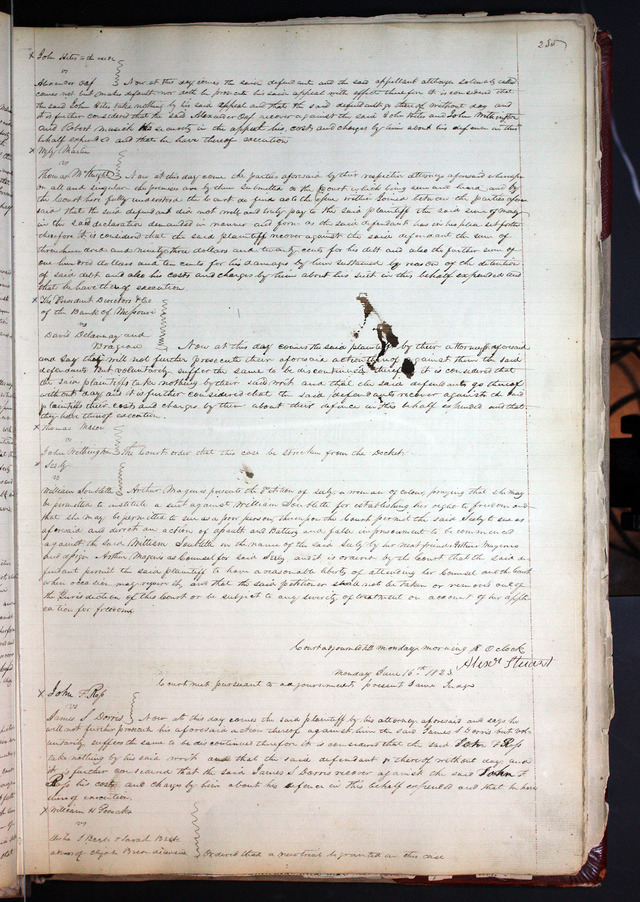 285
x John Hite
vs
Alexander Craf } Now at this day comes the said defendant and the said appellant although solemnly called
comes not but makes default nor doth he prosecute his said appeal with effect therefore it is considered that
the said John Hite take nothing by his said appeal and that the said defendant go thereof without day and
it is further considered that the said Alexander recover against the said John Hite and John
and Robert his security in the appeal his costs and charges by him about his defence in this
behalf expended and that he have thereof execution
x Martin
vs
Thomas } Now at this day come the parties aforesaid by their respective attorneys aforesaid whereupon
all and singular the premises are by them submitted to the Court which being seen and heard and by
the Court here fully understood the Court do find as to the issue within Joined between the parties afore
said that the said defendant did not well and truly pay to the said plaintiff the said sum of money
in the said declaration demanded in manner and form as the said defendant has in his plea set forth
therefore it is considered that the said plaintiff recover against the said defendant the sum of
hundred and ninety three dollars and twenty cents for his debt and also the further sum of
one hundred dollars and ten cents for his damages by him sustained by reason of the detention
of said debt and also his costs and charges by him about his suit in this behalf expended and
that he have thereof execution
x The President Directors & Co
of the Bank of Missouri
vs
David Delaunay and
} Now at this day comes the said plaintiffs by their attorney aforesaid
and say they will not further prosecute their aforesaid action thereof against them the said
defendants but voluntarily suffer the same to be discontinued therefore it is considered that
the said plaintiffs take nothing by their said writ and that the said defendants go thereof
without day and it is further considered that the said defendants recover against the said
plaintiffs their costs and charges by them about their defence in this behalf expended and that
they have thereof execution
x Thomas Mason
vs
John Wethington } The Court order that this case be stricken from the Docket
x Seely
vs
William Soublette } Arthur Magenis presents the Petition of Seely a woman of colour, praying that she may
be permitted to institute a suit against William Soublette for establishing her right to freedom and
that she may be permitted to sue as a poor person, thereupon the Court permit the said Seely to sue as
aforesaid and direct an action of Assault and Battery and false imprisonment to be commenced
against the said William Soublette in the name of the said Seely by her next friend Arthur Magenis
and assign Arthur Magenis as Counsel for said Seely and it is ordered by the Court that the said de
fendant permit the said plaintiff to have a reasonable liberty of attending her Counsel and the Court
when occasion may require it, and that the said petitioner shall not be taken or removed out of
the Jurisdiction of this Court or be subject to any severity of treatment on account of her appli
cation for freedom
Court adjourned till monday morning 8 O'clock
Alexr Stuart
Monday June 16th 1823
Court met pursuant to adjournment present same Judge
x John F. Ross
vs
James S Dorris } Now at this day comes the said plaintiff by his attorney aforesaid and says he
will not further prosecute his aforesaid action thereof against him the said James S Dorris but vol
untarily suffers the same to be discontinued therefore it is considered that the said John F Ross
take nothing by his said writ and that the said defendant go thereof without day and
it is further considered that the said James S Dorris recover against the said John F
Ross his costs and charges by him about his defence in this behalf expended and that he have
thereof execution
x William H
vs
& Sarah
of Elijah deceased } Ordered that a new trial be granted in this case